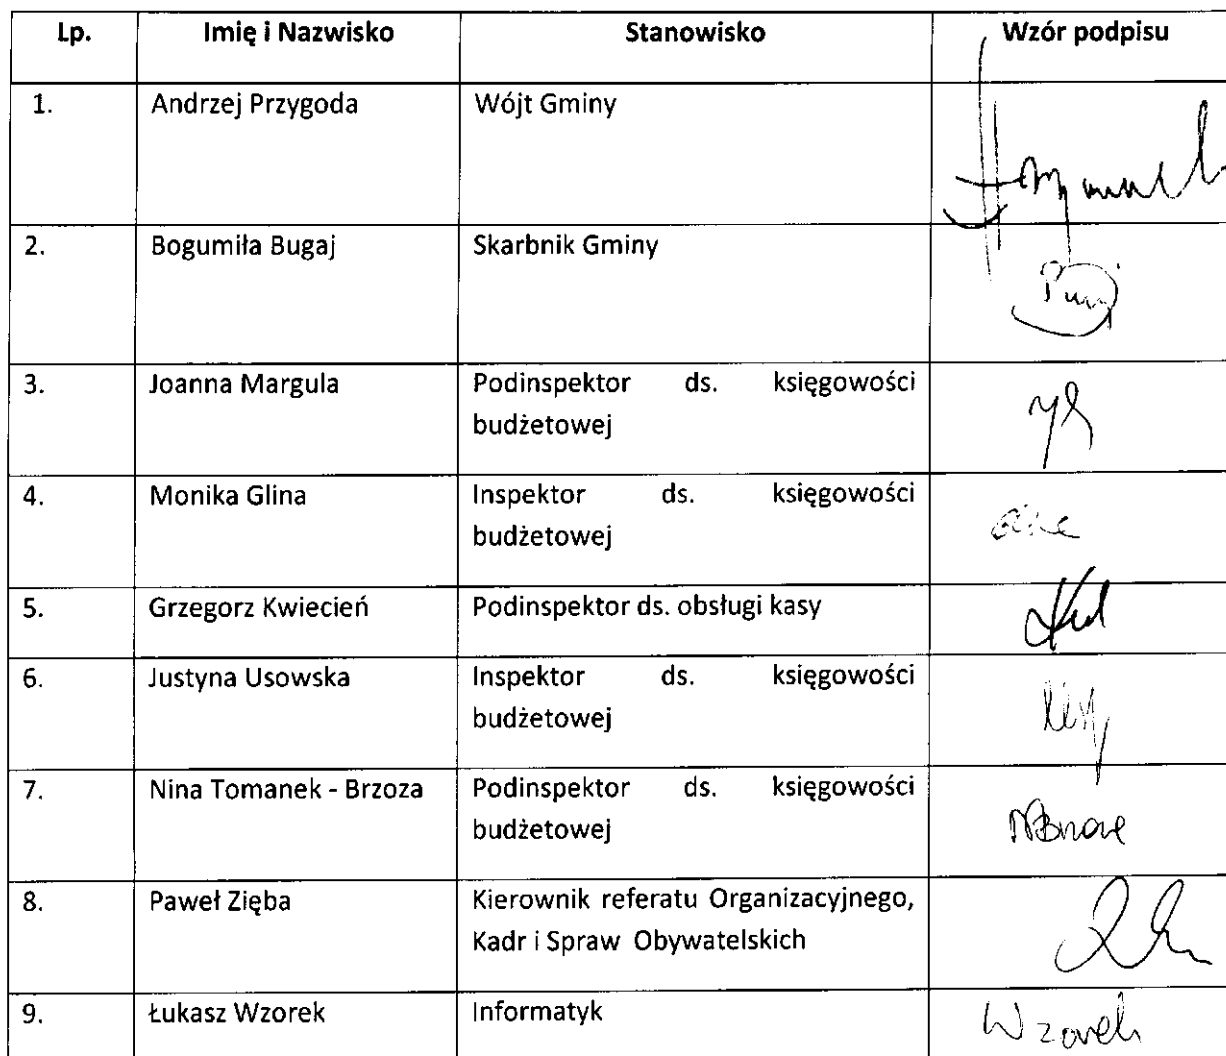 Lp. Imię i Nazwisko Stanowisko Wzór podpisu
1. Andrzej Przygoda Wójt Gminy
2. Bogumiła Bugaj Skarbnik Gminy
3. Joanna Margula Podinspektor ds. księgowości
budżetowej
4. Monika Glina Inspektor ds. księgowości
budżetowej
5. Grzegorz Kwiecień Podinspektor ds. obsługi kasy
6. Justyna Usowska Inspektor ds. księgowości
budżetowej
7. Nina Tomanek - Brzoza Podinspektor ds. księgowości
budżetowej
8. Paweł Zięba Kierownik referatu Organizacyjnego,
Kadr i Spraw Obywatelskich
9. Łukasz Wzorek Informatyk Wzorek